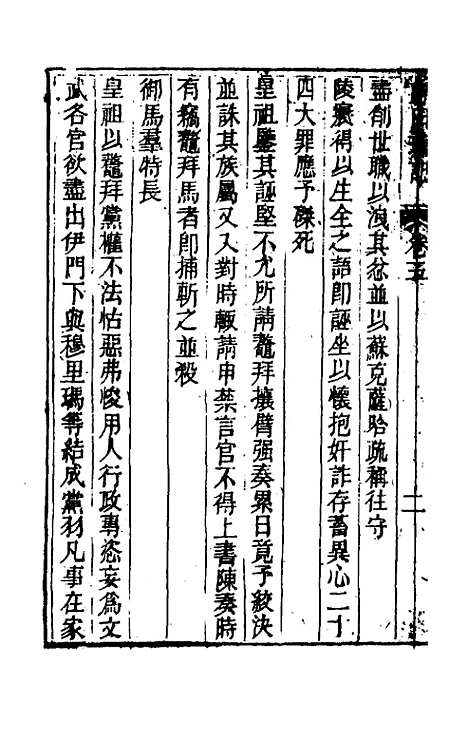 盡削世職以洩其忿並以蘇克薩哈疏稱往守
陵寢得以生全之語卽誣坐以懷抱奸詐存蓄異心二十
四大罪應予磔死
皇祖鑒其誣堅不允所請鼇拜攘臂强奏累日竟予絞決
並誅其族屬又入對時輙請申禁言官不得上書陳奏時
有竊鼇拜馬者卽捕斬之並殺
御馬羣特長
皇祖以鼇拜黨權不法怙惡弗悛用人行政專恣妄爲文
武各官欲盡出伊門下與穆里瑪等結成黨羽凡事在家
卷五
二